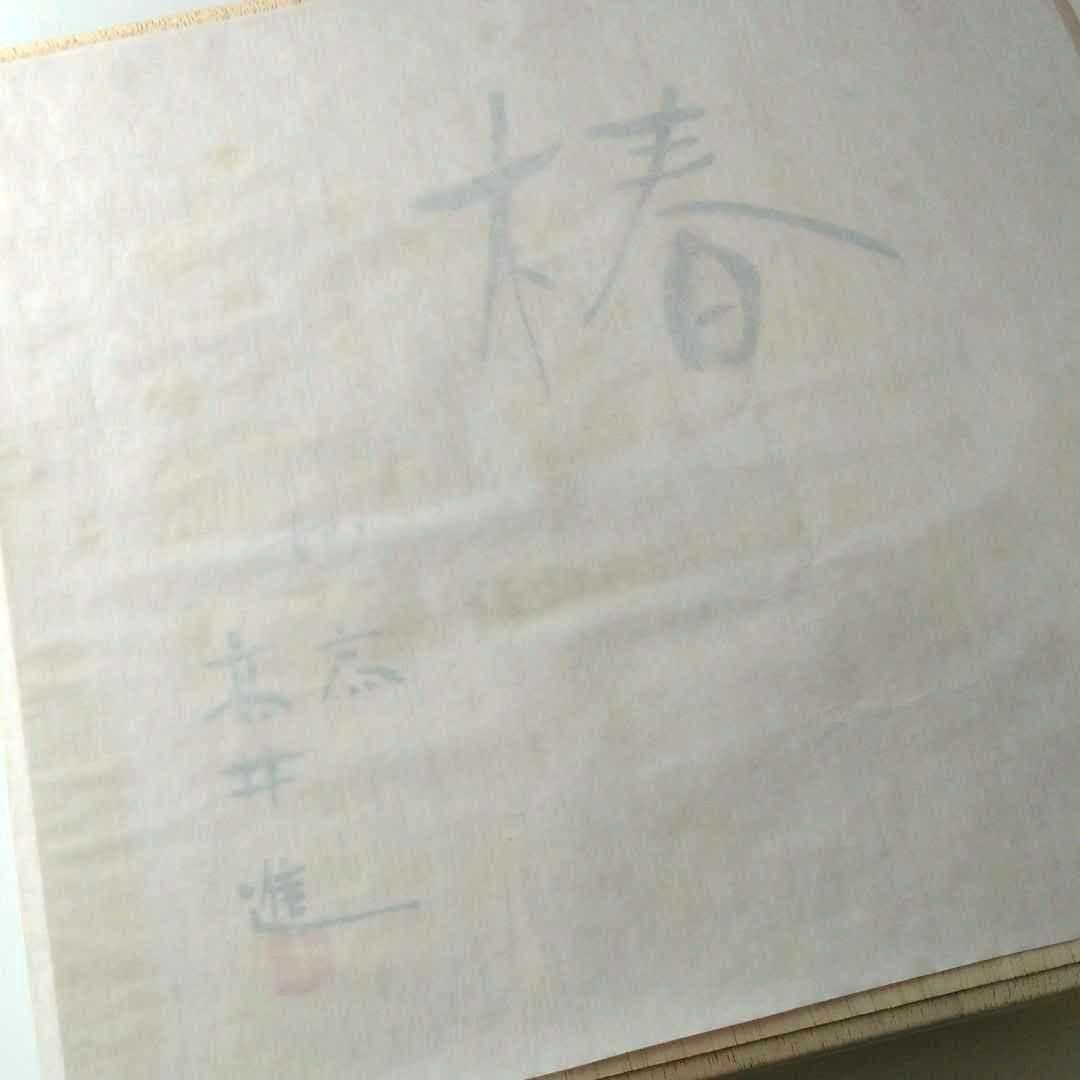 椿
高井進